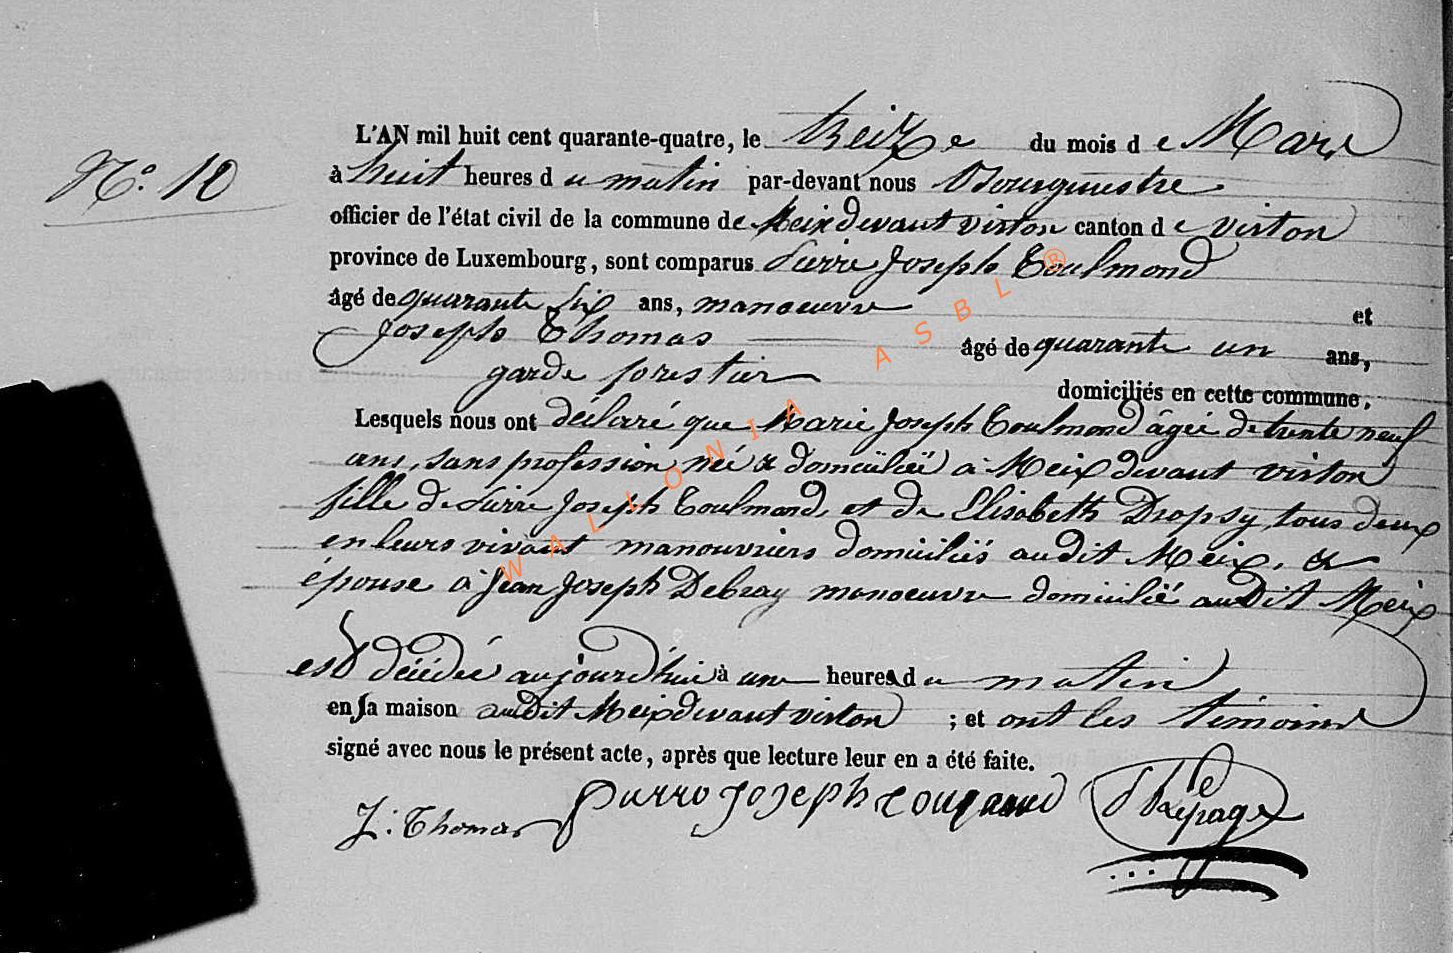 N.° 10
L'AN mil huit cent quarante-quatre, le treize du mois de Mars
à huit heures du matin par-devant nous Bourgmestre
officier de l'état civil de la commune de Meix devant virton canton de virton
province de Luxembourg, sont comparus Pierre Joseph Toulmond
âgé de quarante six ans, manoeuvre et
Joseph Thomas âgé de quarante un ans,
garde forestier domiciliés en cette commune,
Lesquels nous ont déclaré que Marie Joseph Toulmond âgée de trente neuf
ans, sans profession née & domiciliée à Meix devant virton
fille de Pierre Joseph Toulmond, et de Elisabeth Dropsy, tous deux
en leurs vivant manouvriers domiciliés audit Meix, &
épouse à Jean Joseph Debray manoeuvre domicilié audit Meix
est décédée aujourd'hui à une heures du matin
en sa maison audit Meix devant virton ; et ont les témoins
signé avec nous le présent acte, après que lecture leur en a été faite.
J. Thomas Pierre Joseph Toulmond Lepage
WALLONIA ASBL ®